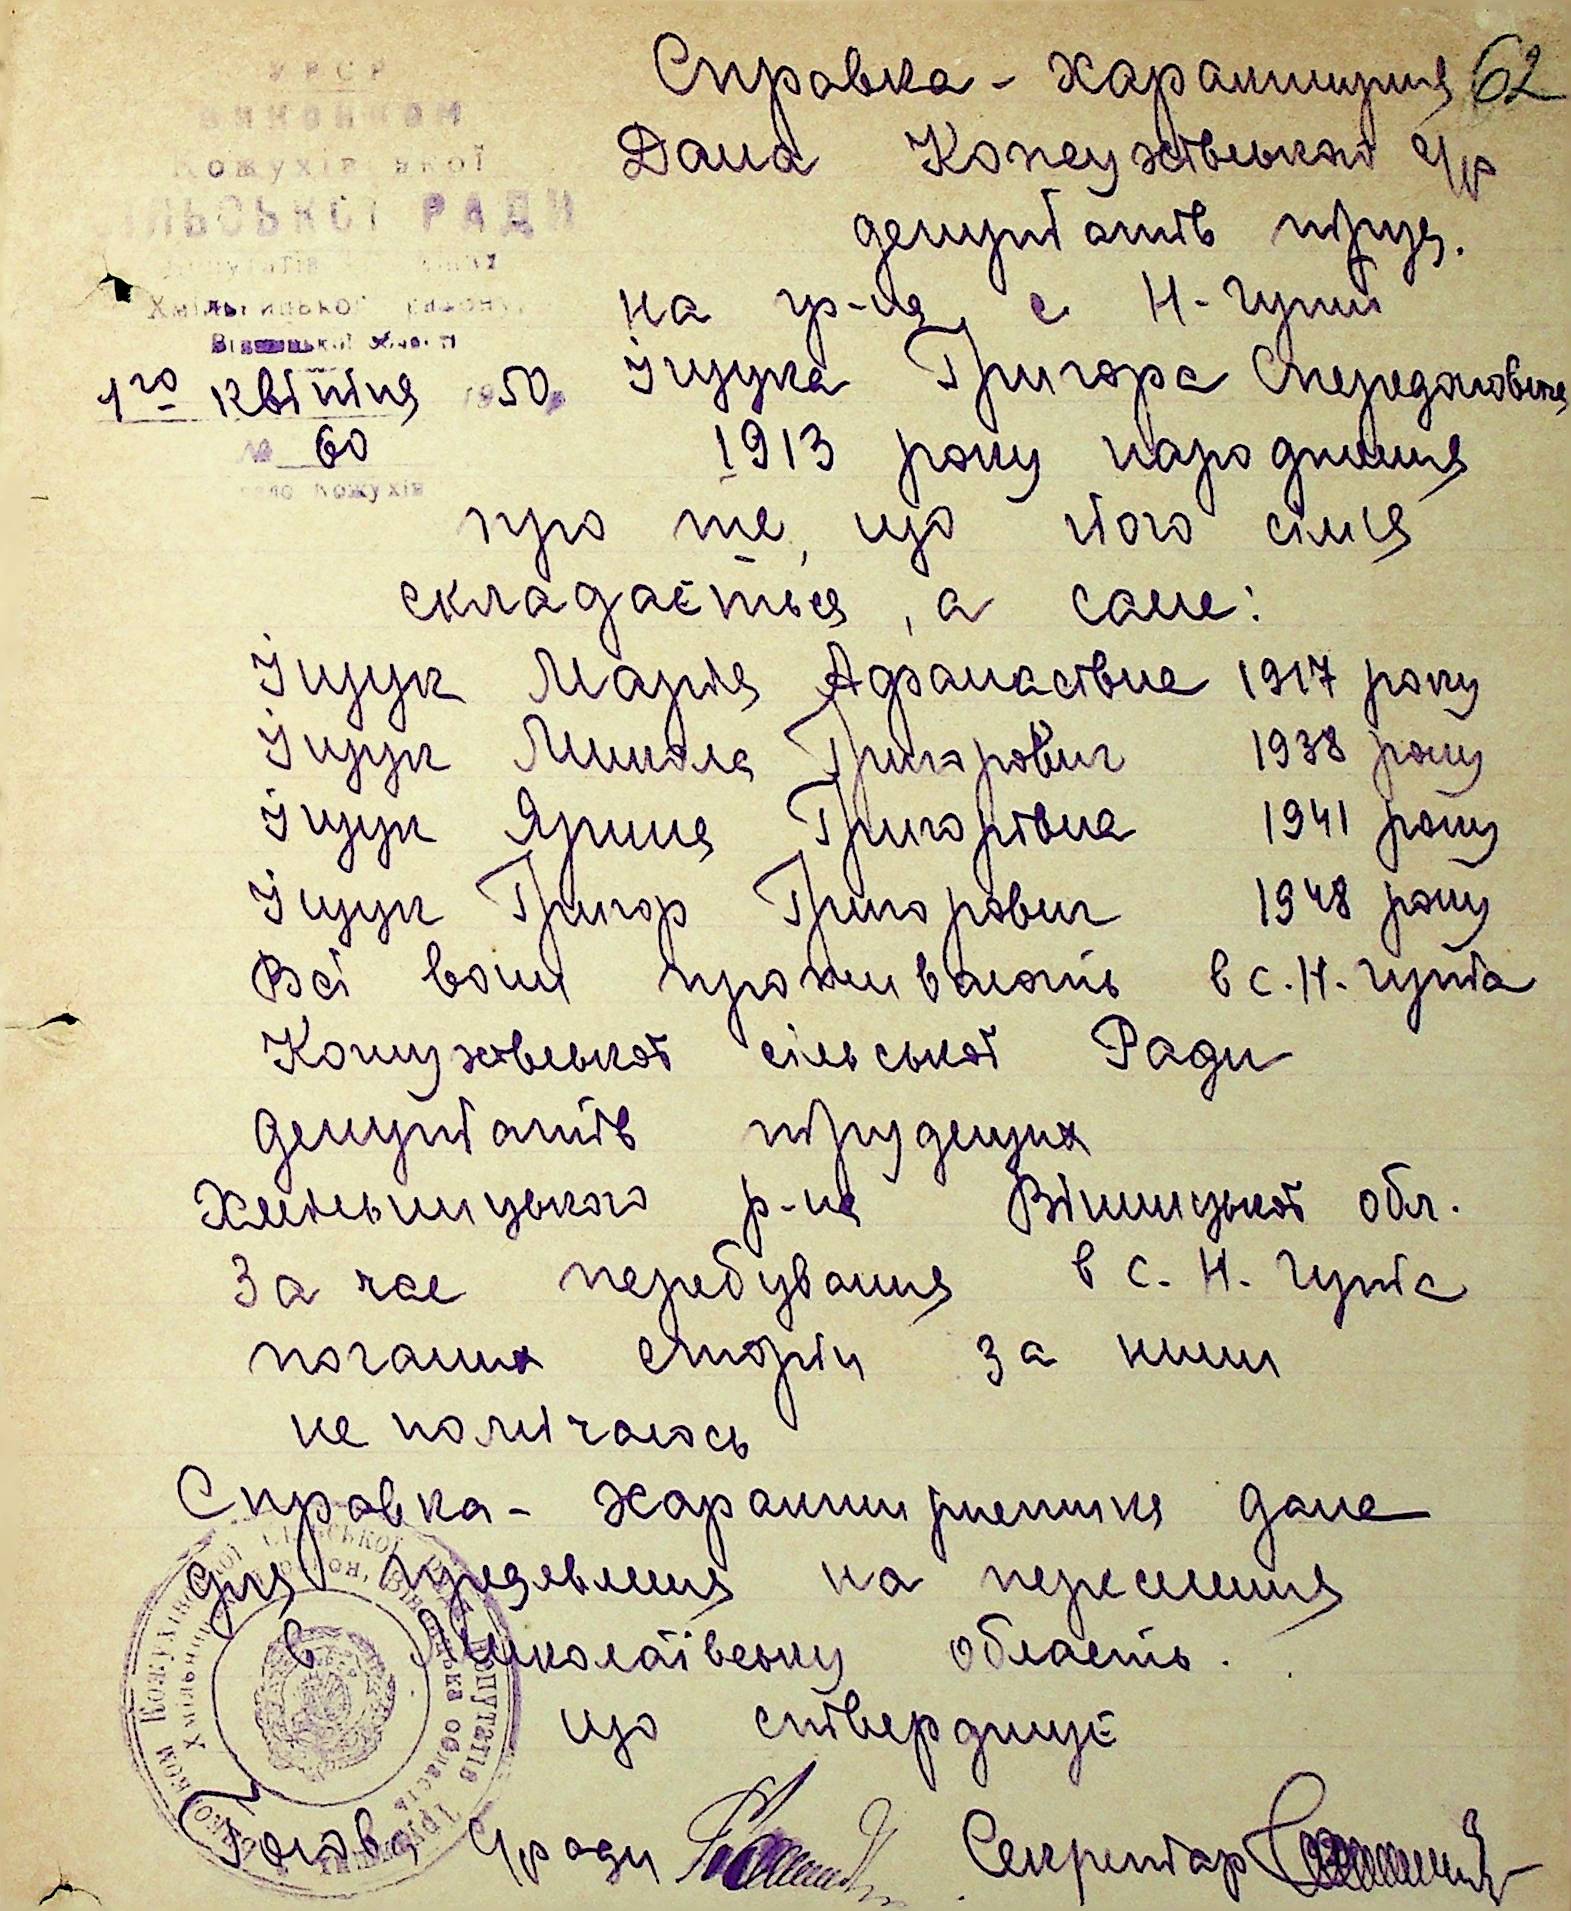 УРСР
ВИКОНКОМ
Кожухівської
СІЛЬСЬКОЇ РАДИ
депутатів
Хмільницького району,
Вінницької області
1го квітня 1950р
№ 60
село Кожухів
62
Справка - характиристика
Дана Кожухівської с/р
депутатів труд.
на гр-на с Н-Гута
Іщука Григора Спиридоновича
1913 року народження
про те, що його сімья
складається, а саме:
Іщук Марія Афанасівна 1917 року
Іщук Микола Григорович 1938 року
Іщук Ярина Григорівна 1941 року
Іщук Григор Григорович 1948 року
Всі вони проживають в с. Н. Гута
Кожухівської сільської Ради
депутатів трудящих
Хмільницького р-на Вінницької обл.
За час перебування в с. Н. Гута
поганих сторін за ними
не помічалось
Справка - характиристика дана
для предявлення на переселення
в Миколаївську область.
що стверджує
Голова с/ради Секретар